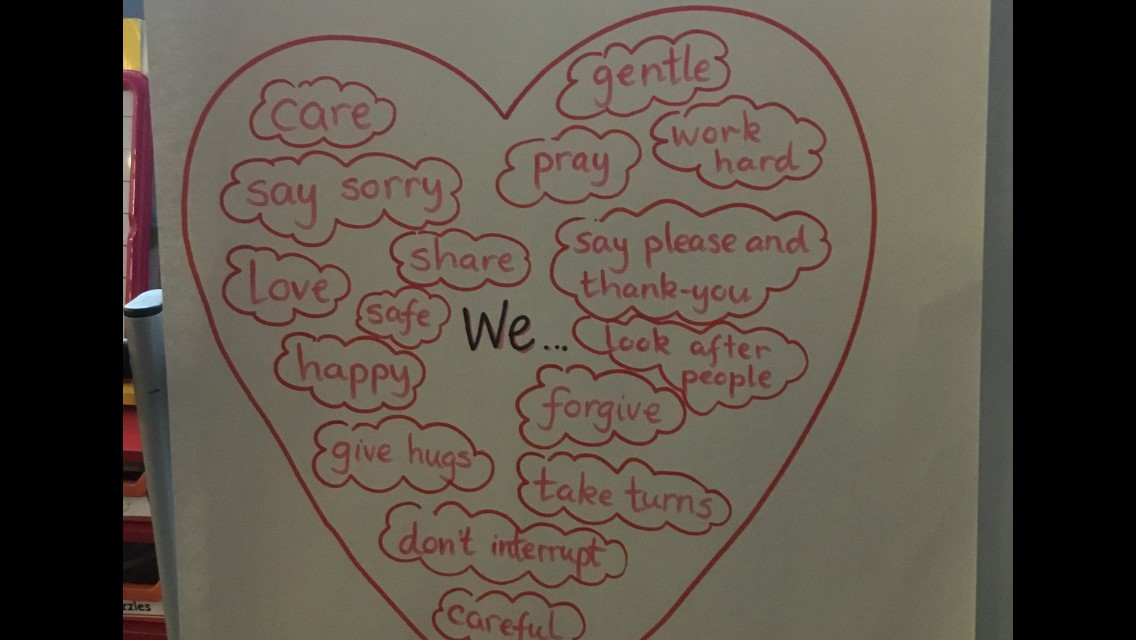 gentle
care
work
hard
pray
say sorry
say please and
thank-you
share
Love
safe
We...
look after
people
happy
forgive
give hugs
take turns
don't interrupt
careful
zzles